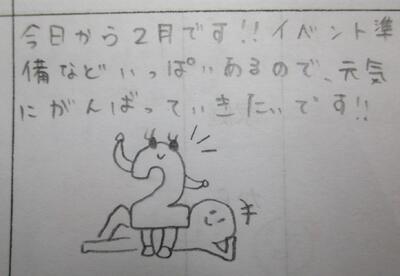 今日から2月です!!イベント準
備などいっぱいあるので、元気
にがんばっていきたいです!!
2